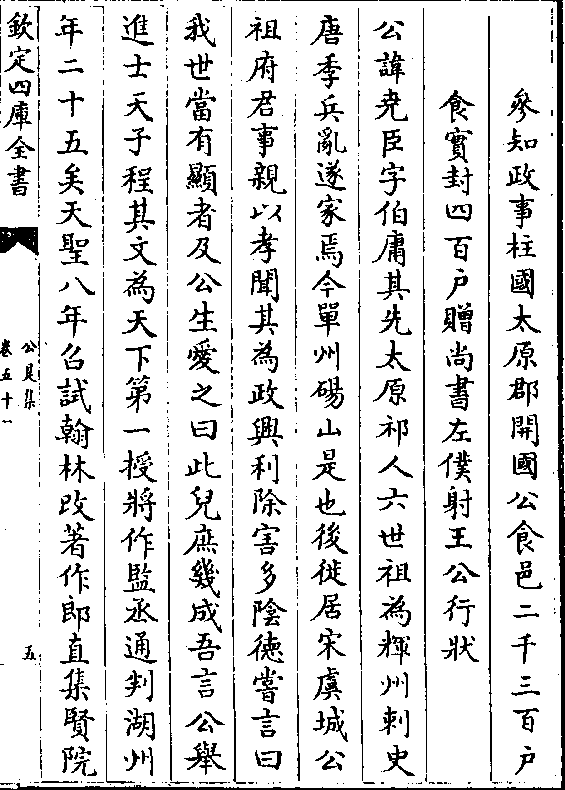 參知政事柱國太原郡開國公食邑二千三百户
食實封四百户贈尚書左僕射王公行狀
公諱堯臣字伯庸其先太原祁人六世祖為輝州刺史
唐季兵亂遂家焉今單州碭山是也後徙居宋虞城公
祖府君事親以孝聞其為政興利除害多陰徳嘗言曰
我世當有顯者及公生愛之曰此兒庶幾成吾言公舉
進士天子程其文為天下第一授將作監丞通判湖州
年二十五矣天聖八年召試翰林改著作郎直集賢院
欽定四庫全書
公是集
卷五十一
五